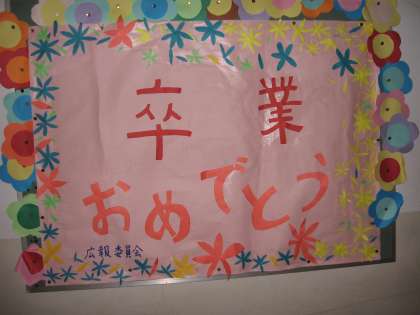 卒業
おめでとう
広報委員会